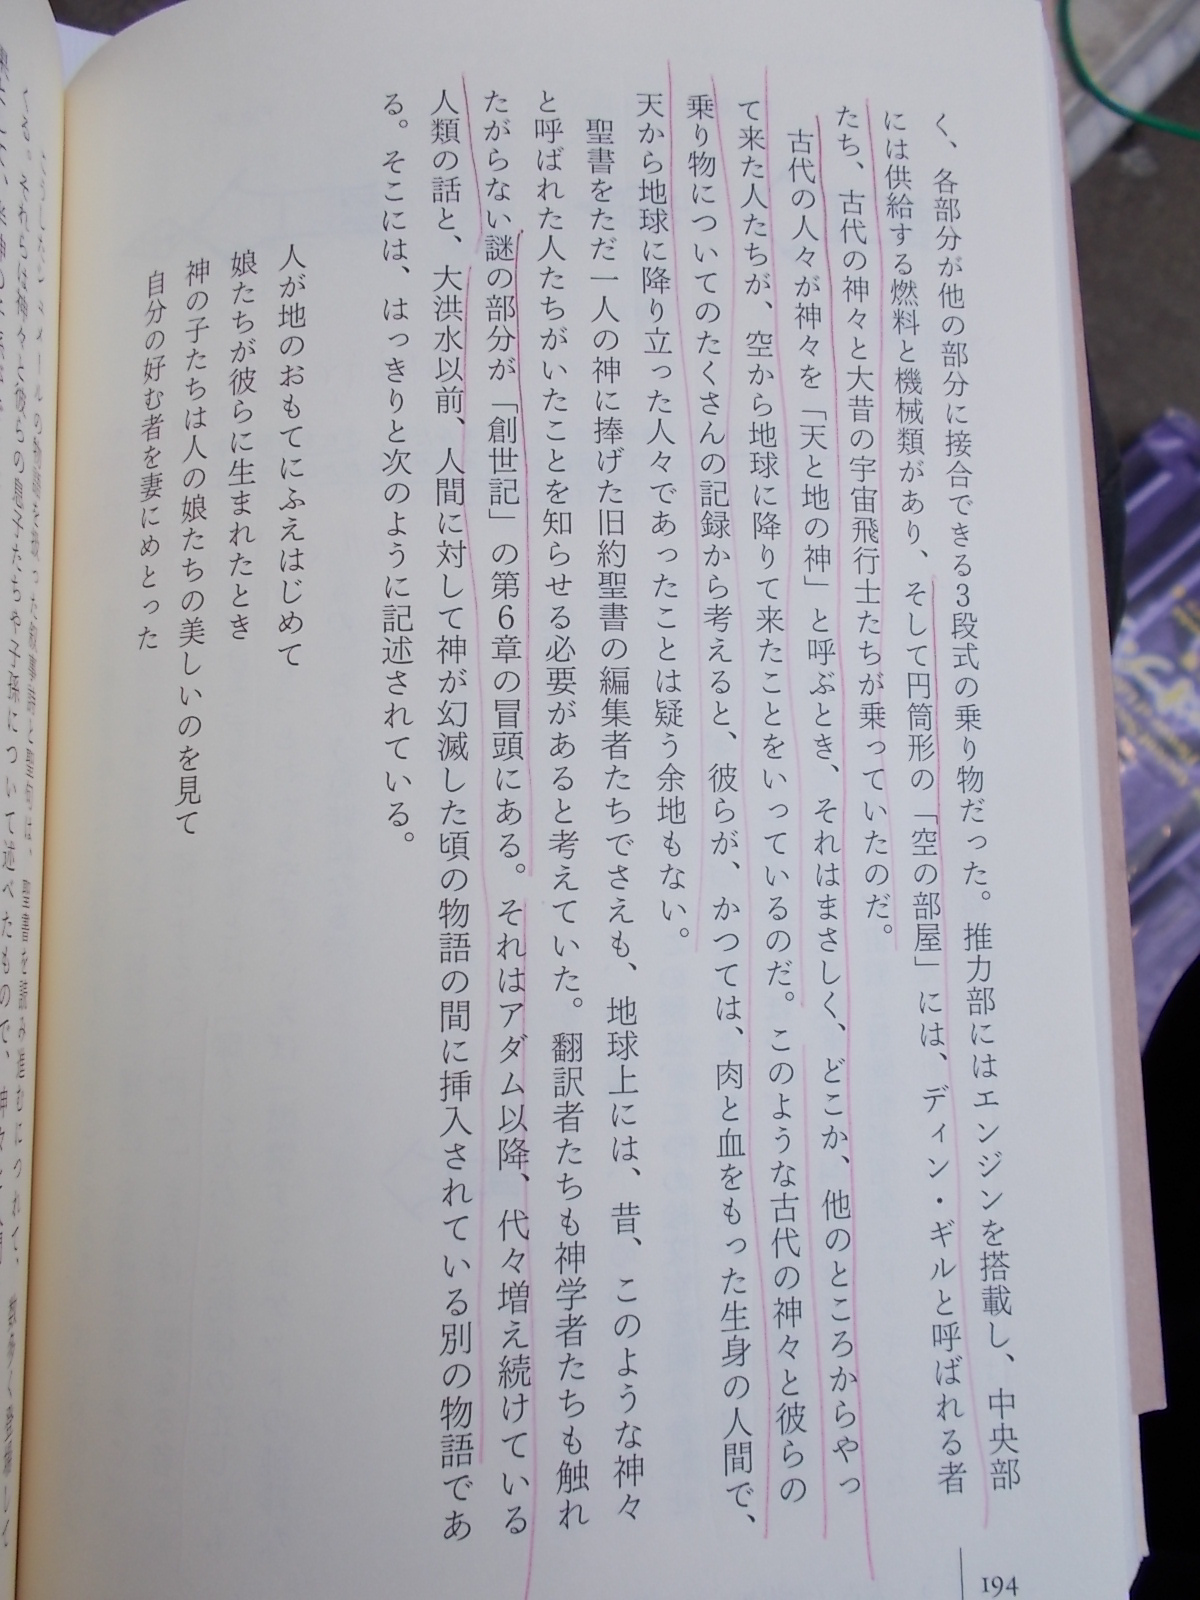 く、各部分が他の部分に接合できる3段式の乗り物だった。推力部にはエンジンを搭載し、中央部
には供給する燃料と機械類があり、そして円筒形の「空の部屋」には、ディン・ギルと呼ばれる者
たち、古代の神々と大昔の宇宙飛行士たちが乗っていたのだ。
古代の人々が神々を「天と地の神」と呼ぶとき、それはまさしく、どこか、他のところからやっ
て来た人たちが、空から地球に降りて来たことをいっているのだ。このような古代の神々と彼らの
乗り物についてのたくさんの記録から考えると、彼らが、かつては、肉と血をもった生身の人間で、
天から地球に降り立った人々であったことは疑う余地もない。
聖書をただ一人の神に捧げた旧約聖書の編集者たちでさえも、地球上には、昔、このような神々
と呼ばれた人たちがいたことを知らせる必要があると考えていた。翻訳者たちも神学者たちも触れ
たがらない謎の部分が「創世記」の第6章の冒頭にある。それはアダム以降、代々増え続けている
人類の話と、大洪水以前、人間に対して神が幻滅した頃の物語の間に挿入されている別の物語であ
る。そこには、はっきりと次のように記述されている。
人が地のおもてにふえはじめて
娘たちが彼らに生まれたとき
神の子たちは人の娘たちの美しいのを見て
自分の好む者を妻にめとった
194